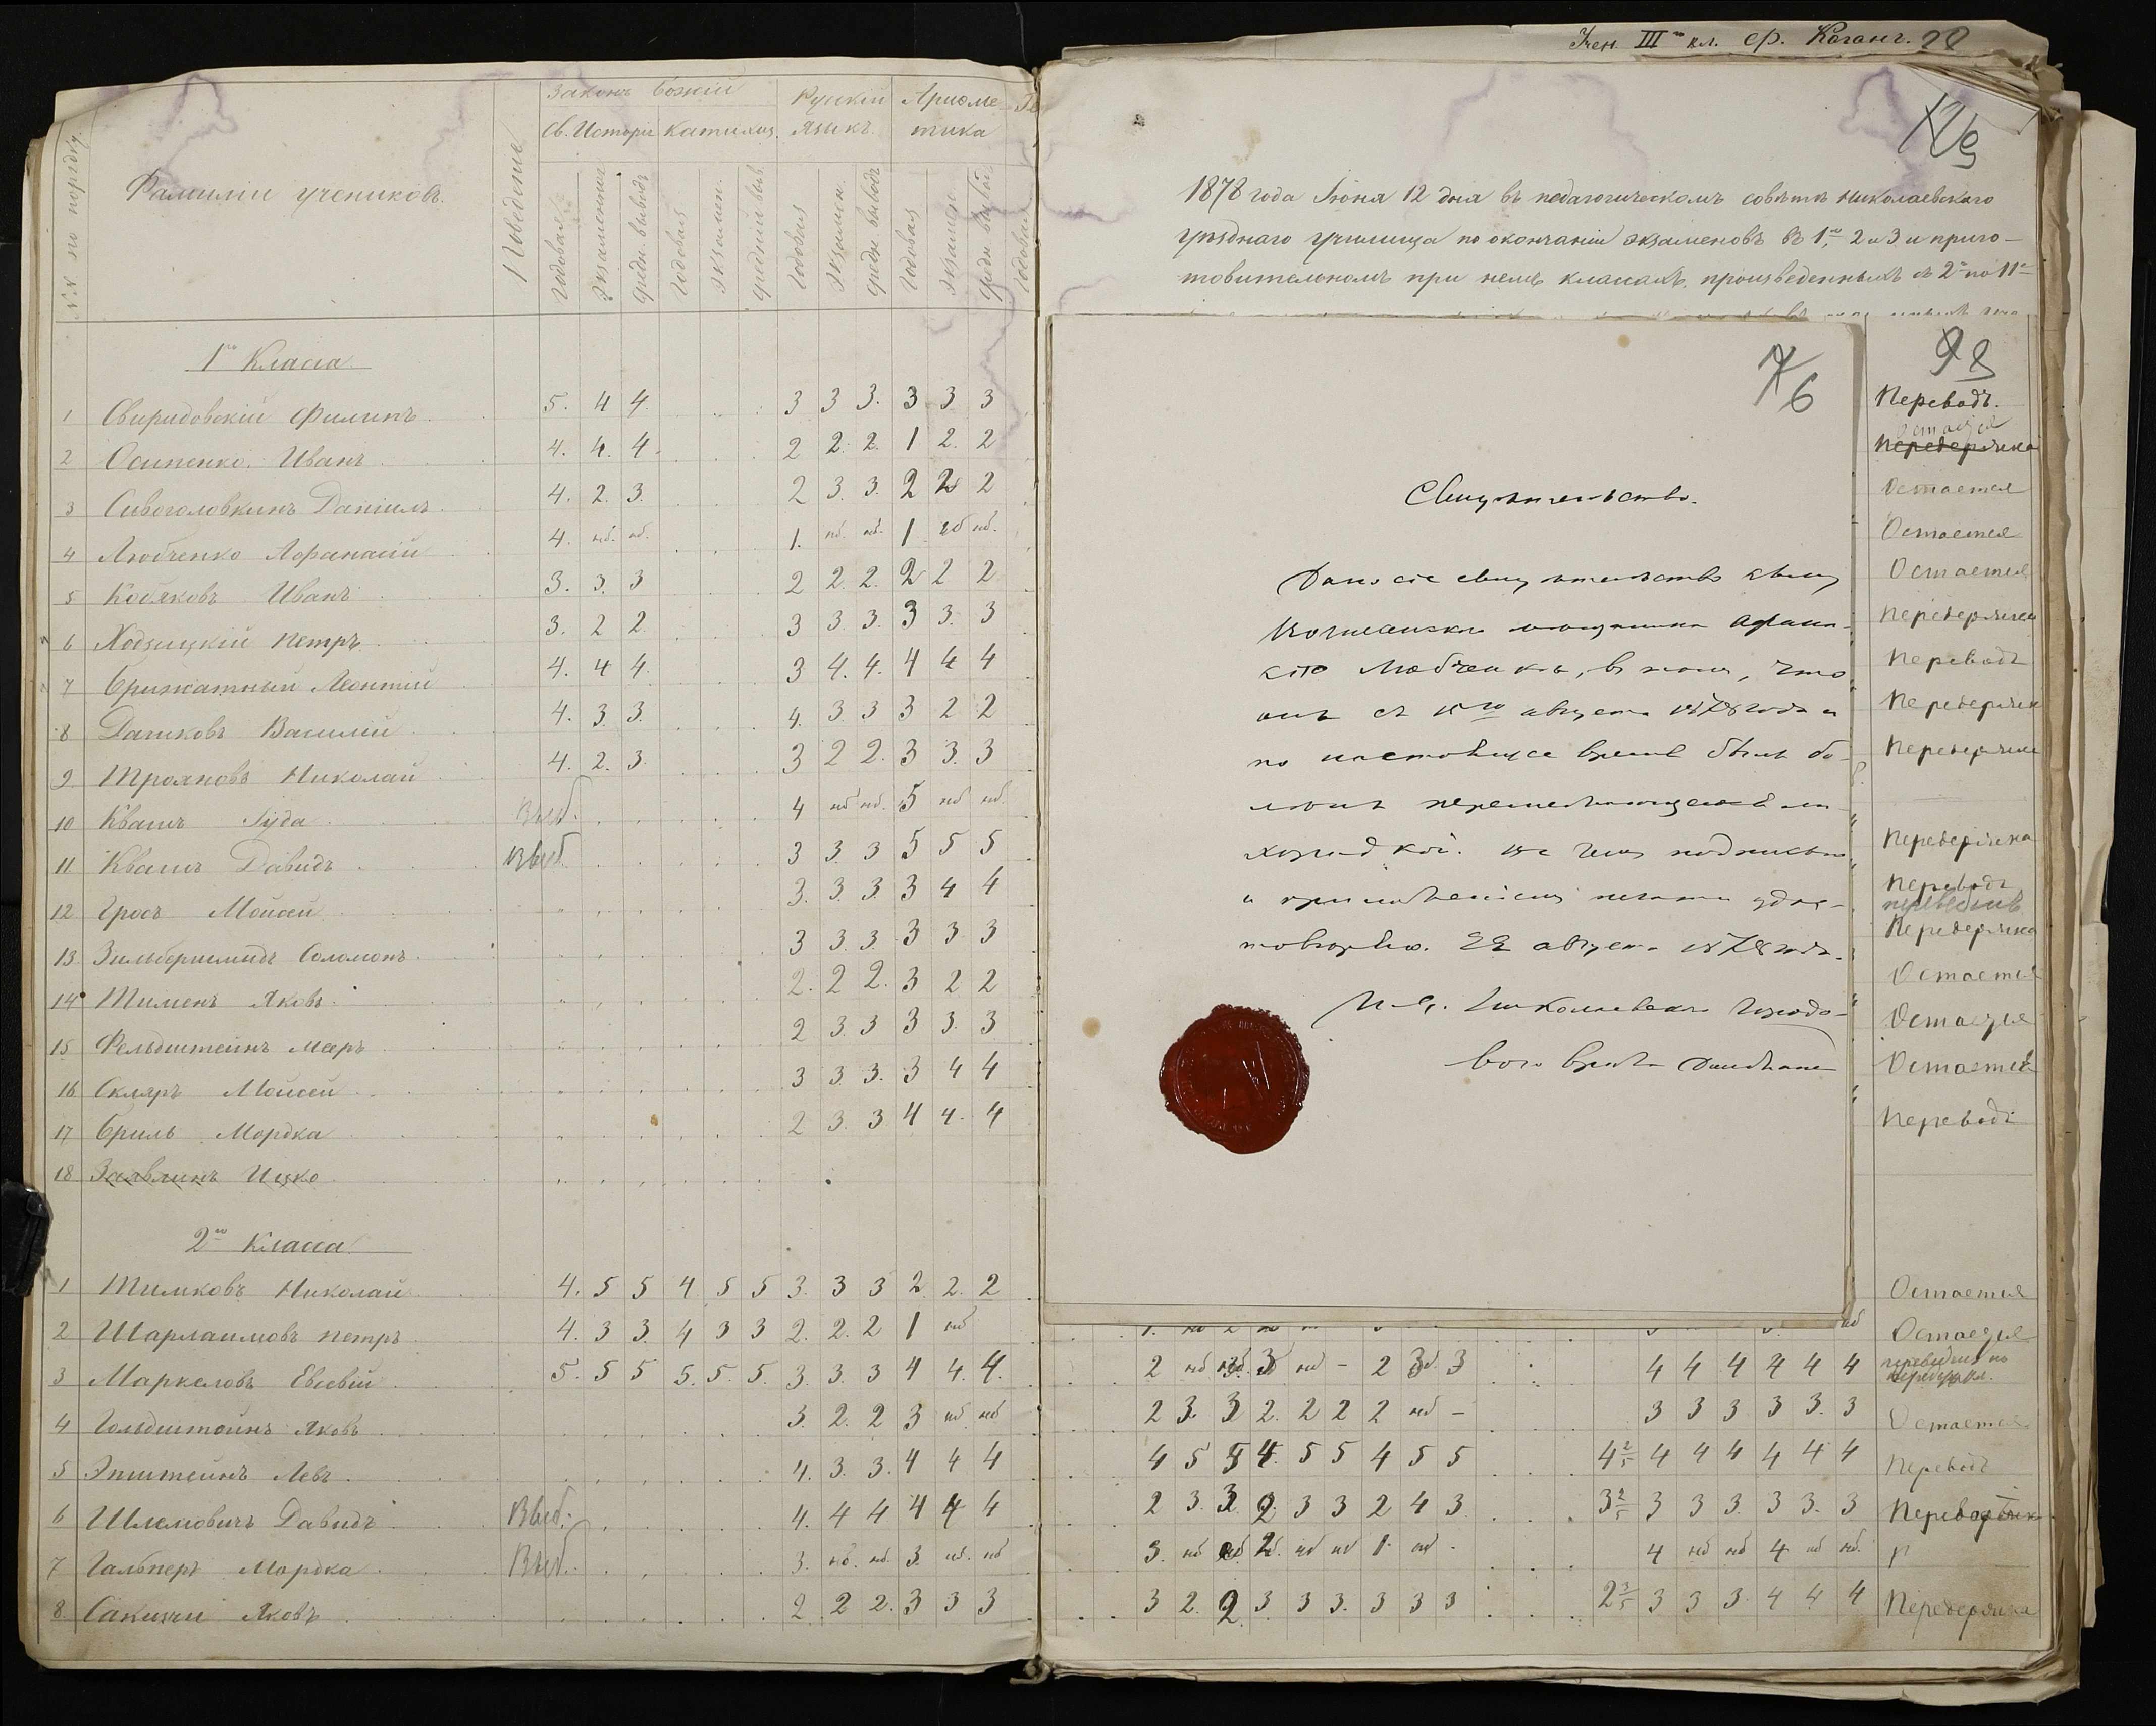 №№ по порядку
Фамиліи учениковъ.
Поведеніе
Законъ Божій
Св. Исторія
Катихиз.
Русскій языкъ.
Ариѳметика
Годовая
Экзаменная
Средн. выводъ
Годовая
Экзамен.
Средній выв.
Годовая
Экзамен.
Средн. выводъ
Годовая
Экзамен
Средн. вывод
Годовая
1го Класса
1 Свиридовскій Филипъ 5. 4 4 3 3 3. 3 3 3
2 Осипенко Иванъ 4. 4. 4 2 2. 2. 1 2. 2
3 Сивоголовкинъ Даніилъ 4. 2. 3. 2 3. 3. 2 2 2
4 Любченко Афанасій 4. нб. нб. 1. нб нб. 1 нб нб.
5 Кобяковъ Иванъ 3. 3. 3 2 2. 2. 2 2 2
6 Ходзицкій Петръ 3. 2 2. 3 3. 3. 3 3. 3
7 Брижатный Леонтій 4. 4 4. 3 4. 4. 4 4. 4
8 Дашковъ Василій 4. 3. 3. 4. 3. 3 3 2 2
9 Трояновъ Николай 4. 2. 3. 3 2 2. 3 3. 3
10 Квашъ Іуда Выб. 4 нб нб. 5 нб нб.
11 Квашъ Давидъ Выб. 3 3. 3 5 5 5
12 Гросъ Мойсей 3. 3. 3. 3 4 4
13 Зильбершмидъ Соломонъ 3 3. 3. 3 3 3
14 Тименъ Яковъ 2. 2 2. 3 2 2
15 Фельдштейнъ Меръ 2 3 3 3 3. 3
16 Скляръ Мойсей 3 3. 3. 3 4 4
17 Бриль Мордка 2 3. 3 4 4. 4
18 Ицко
2го Класса
1 Тимковъ Николай 4. 5 5 4 5 5 3. 3 3 2 2. 2
2 Шарлаимовъ Петръ 4. 3 3. 4 3 3 2. 2. 2 1 нб
3 Маркеловъ Евсевій 5. 5 5 5. 5. 5. 3. 3. 3 4 4. 4.
4 Гольдштейнъ Яковъ 3. 2. 2 3 нб нб
5 Эпштейнъ Левъ 4. 3. 3. 4 4 4
6 Шлемовичъ Давидъ Выб. 4. 4 4 4 4 4
7 Гальперъ Мордка Выб. 3. нб. нб. 3. нб. нб
8 Сакизчи Яковъ 2. 2 2. 3 3 3
Учен. III го кл. ср. Коганъ. 98
1878 года Іюня 12 дня въ педагогическомъ совѣтѣ Николаевскаго
уѣзднаго училища по окончаніи экзаменовъ въ 1мъ, 2 и 3 и приго-
товительномъ при немъ классахъ, произведенныхъ съ 2го по 11е
6
Свидѣтельство.
Дано сіе свидѣтельство
мѣщанину Афана-
сію Любченко, въ томъ, что
онъ съ 15го августа 1878 года и
по настоящее время былъ бо-
ленъ перемежающеюся ли-
хорадкой. Въ чемъ подписью
и приложеніемъ печати удос-
товѣряю. 22 августа 1878 года.
И. д. Николаевскаго Городо-
вого врача
98
Переводъ.
Остается
Передержка
Остается
Остается
Остается
Передержка
Переводъ
Передержка
Передержка
Передержка
Переводъ
Передержка
Остается
Остается
Остается
Переводъ
Остается
Остается
2 нб нб 3 нб - 2 3 3 4 4 4 4 4 4
2 3. 3 2. 2 2 2 нб - 3 3 3 3 3. 3 Остается
4 5 5 4. 5 5 4 5 5 4 2/5 4 4 4 4 4 4 Переводъ
2 3. 3 2. 3 3 2 4 3 3 2/5 3 3 3. 3 3. 3
3. нб нб 2. нб нб 1. нб 4 нб нб 4 нб нб.
3 2. 2. 3 3 3. 3 3 3 2 3/5 3 3 3 4 4 4 Передержка